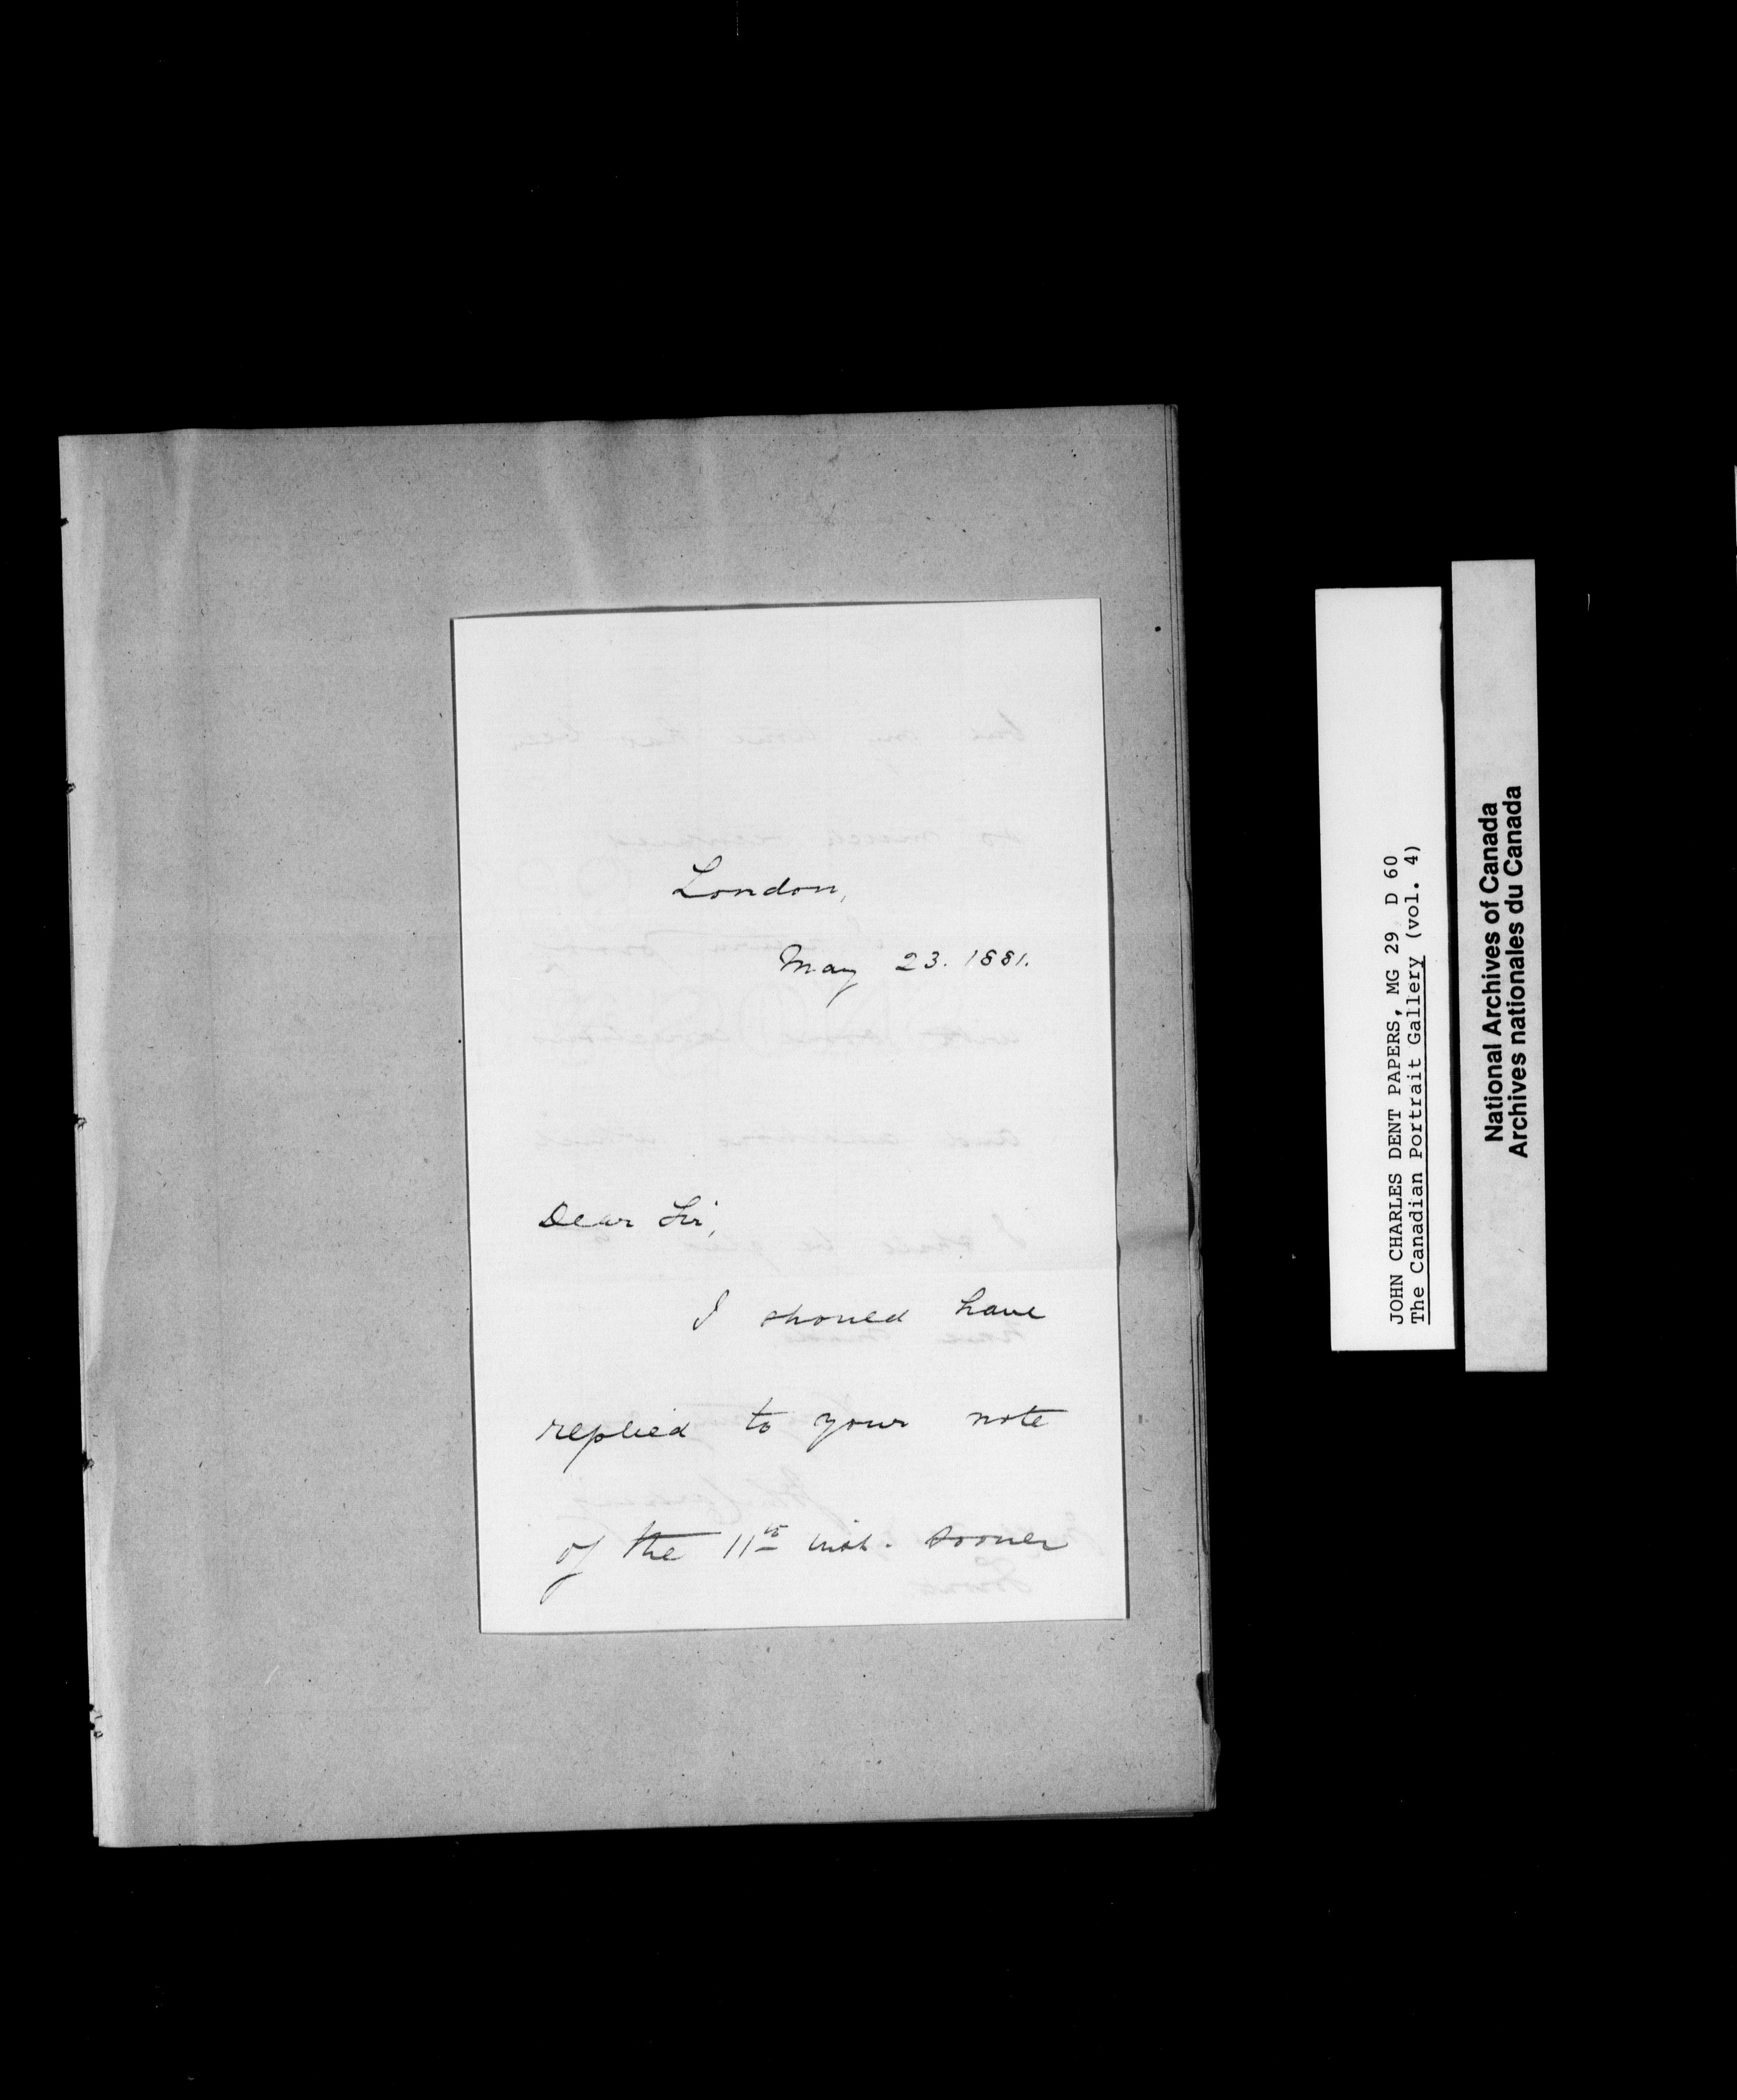 London,
May 23. 1881.
Dear Sir,
I should have
replied to your note
of the 11th inst. sooner
JOHN CHARLES DENT PAPERS, MG 29 D 60
The Canadian Portrait Gallery (vol. 4)
National Archives of Canada
Archives nationales du Canada